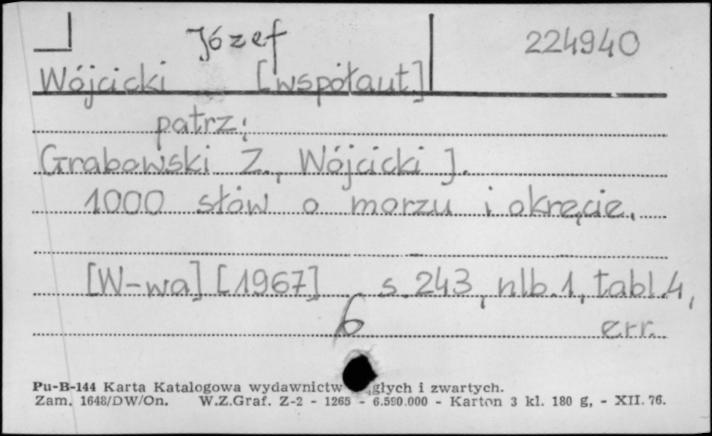 Józef 224940
Wójcicki [współaut]
patrz:
Grabowski Z., Wójcicki J.
1000 słów o morzu i okręcie.
[W-wa] [1967] s. 243, nlb. 1, tabl. 4,
6 err.
Pu-B-144 Karta Katalogowa wydawnictw głych i zwartych.
Zam. 1648/DW/On. W.Z.Graf. Z-2 - 1265 - 6.590.000 - Karton 3 kl. 180 g, - XII. 76.